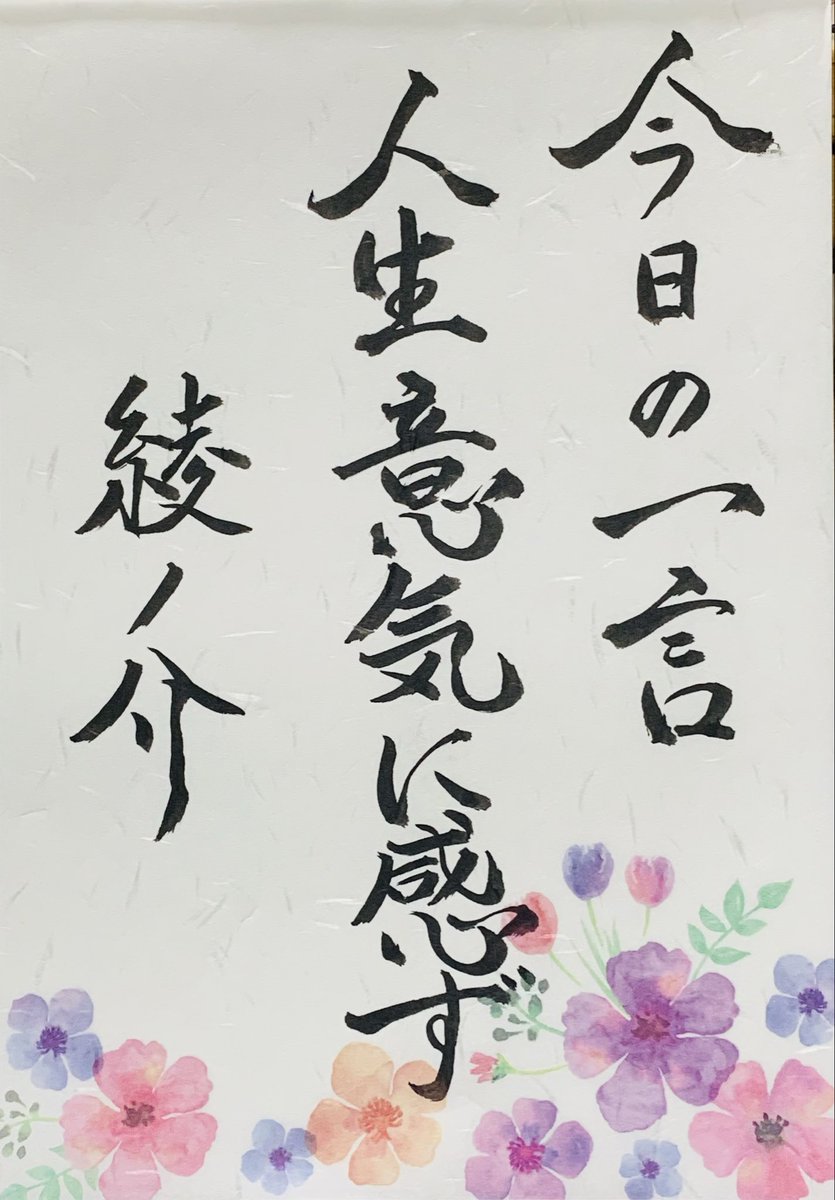 今日の一言
人生意気に感ず
綾ノ介